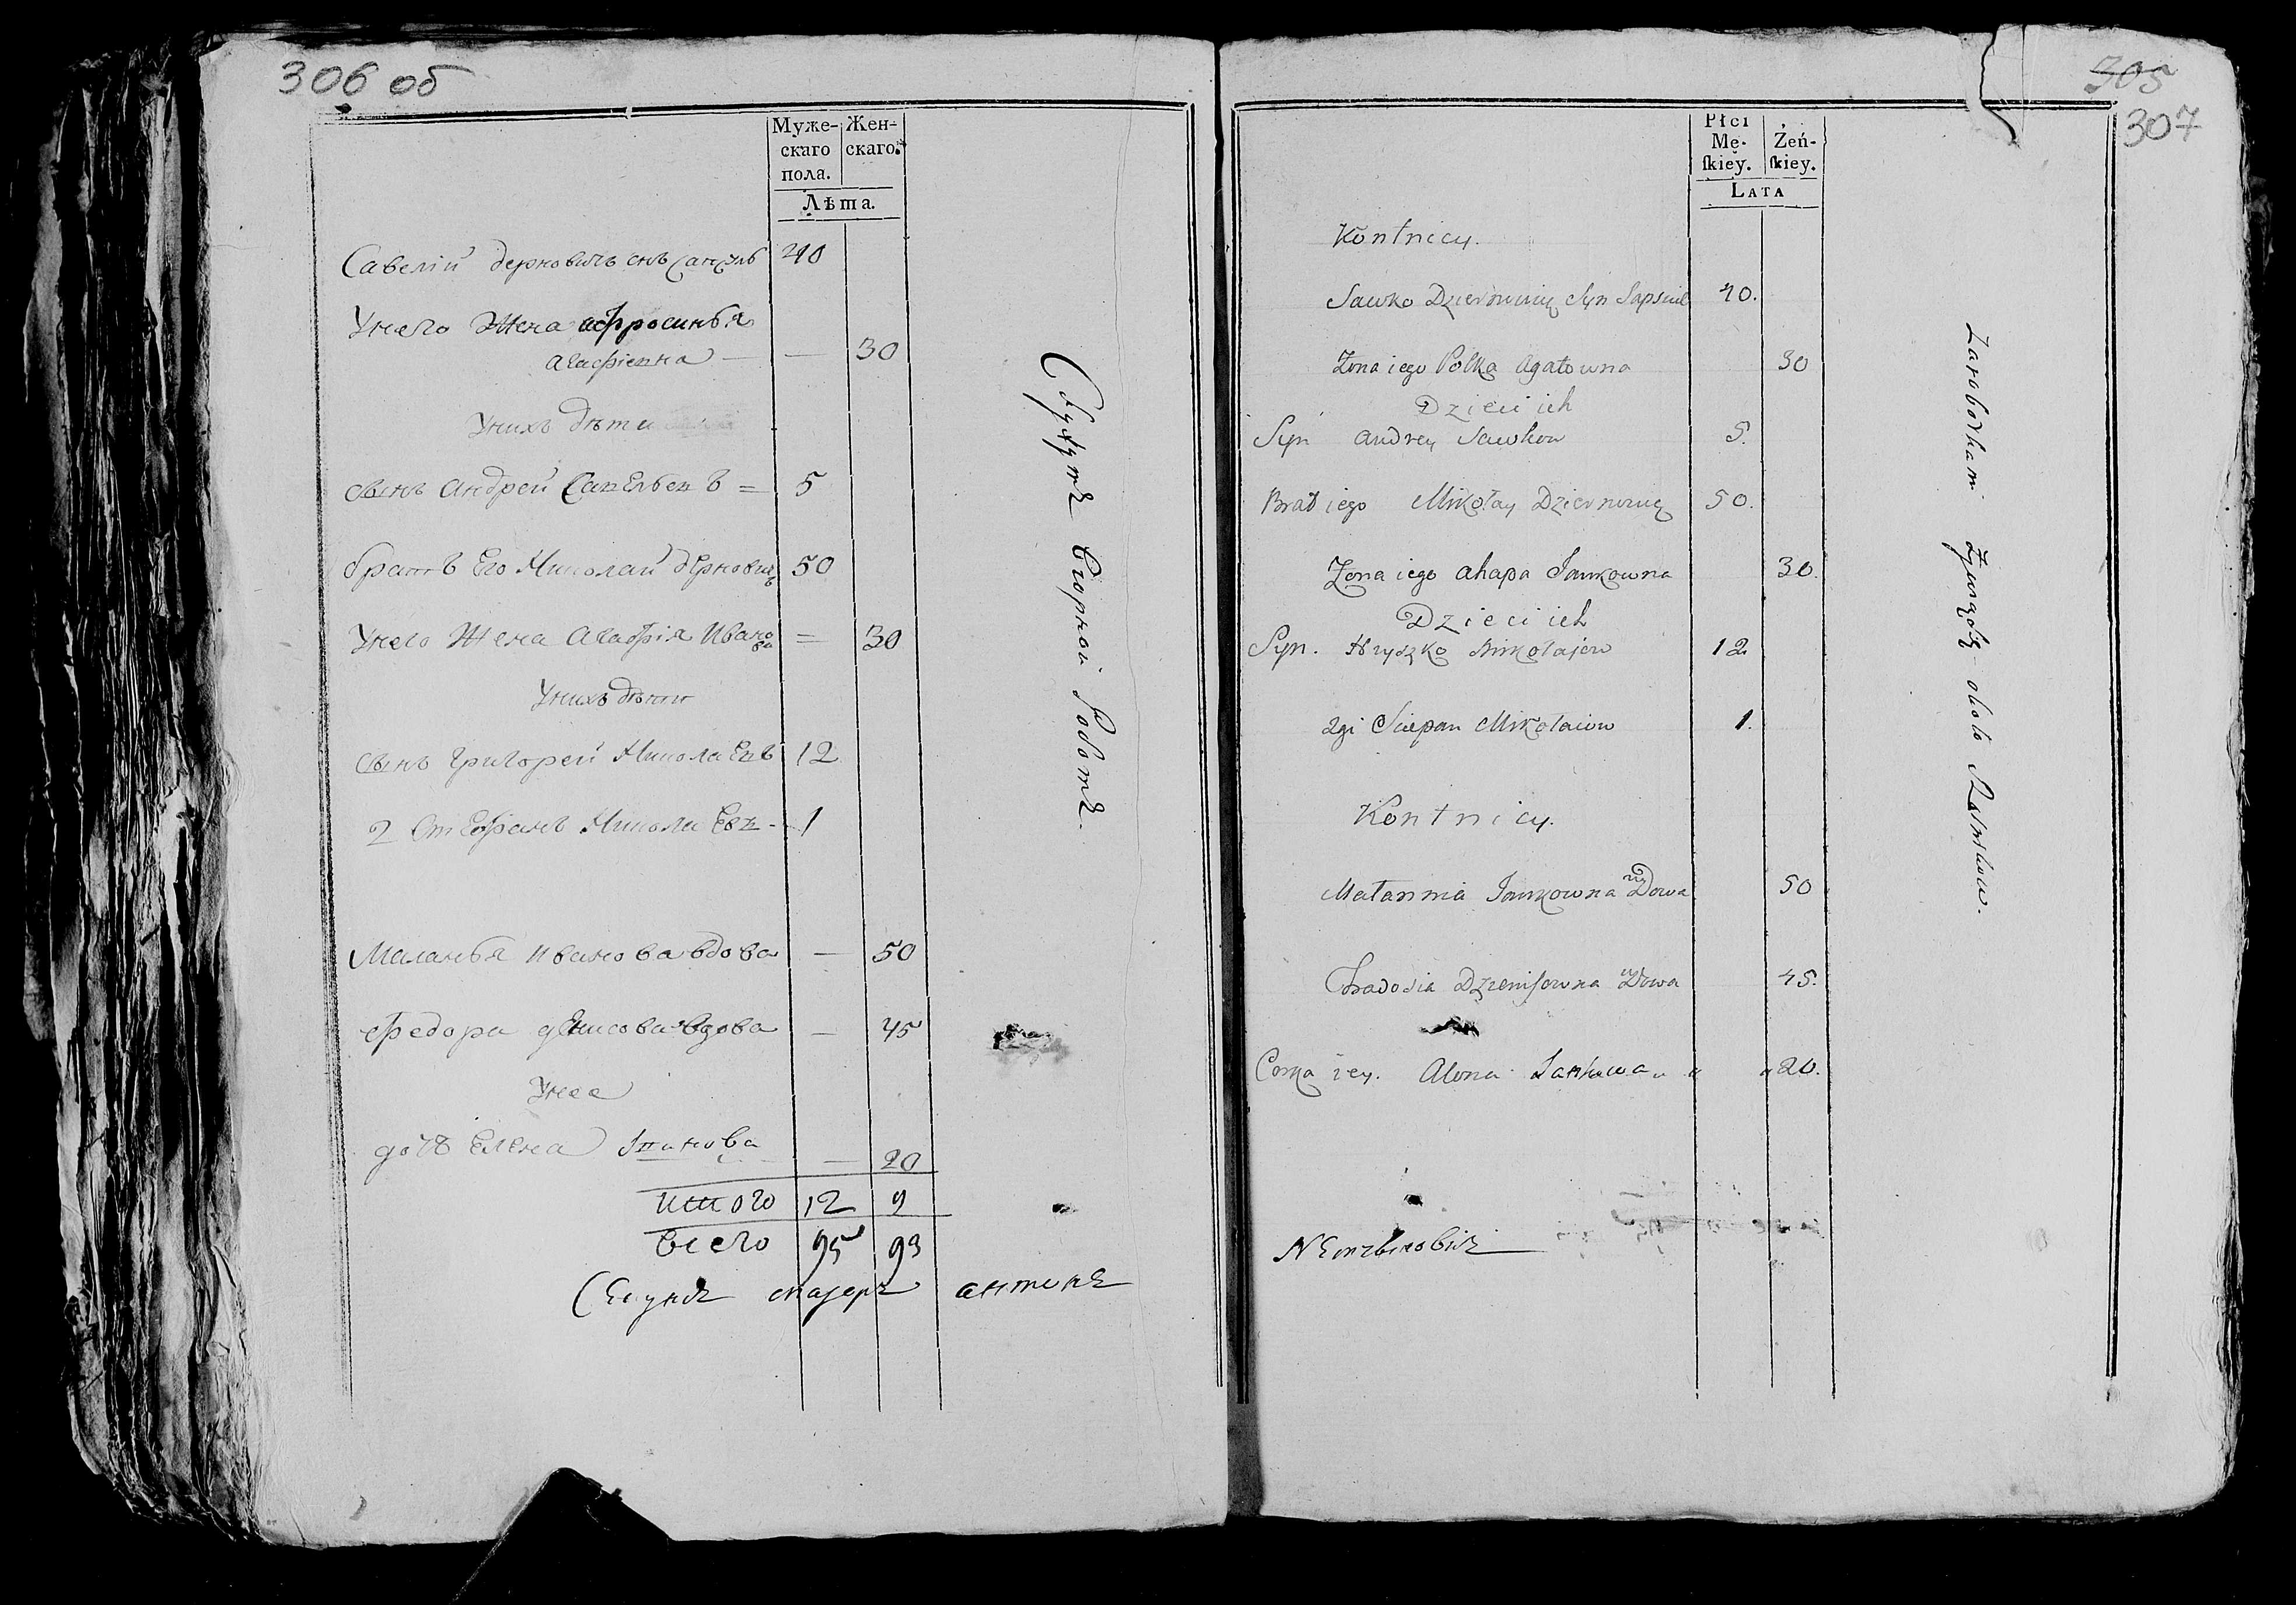 306 об
Муже-
скаго
пола.
Жен-
скаго.
Лѣта.
Савелій дерновичъ снъ 40
Унего Жена афросинья
агафіевна — — 30
Унихъ дѣти
сынъ Андрей Савельевъ = 5
братъ Его Николай дерновичъ 50
Унего Жена Агафія Ивано
ва = 30
Унихъ дѣти
сынъ григорей Николаевъ 12
2 Стефанъ Николаевъ - 1
Маланья иванова вдова — 50
федора денисова вдова — 45
Унее
дочъ Елена — 20
итого 12 9
всего 95 93
маіоръ антонъ
черной работѣ.
305
307
Płci
Mę-
skiey.
Żeń-
skiey.
Lata
Kontnicy.
Sawko Dziernowicz Syn 40.
Żona iego Polka Agatowna 30
Dzieci ich
Syn Andrey Sawkow 5.
Brat iego Mikołay Dziernowicz 50.
Żona iego Ahapa Jankowna 30.
Dzieci ich
Syn. Hryszko Mikołajew 12
2gi Sciepan Mikołaiow 1.
Kontnicy.
Małannia Jankowna Wdowa 50
Chwadosia Dzienisowna Wdowa 45.
Corka iey. Alona Jankowa „ „ „ 20.
Zarobotkami Żyweących około